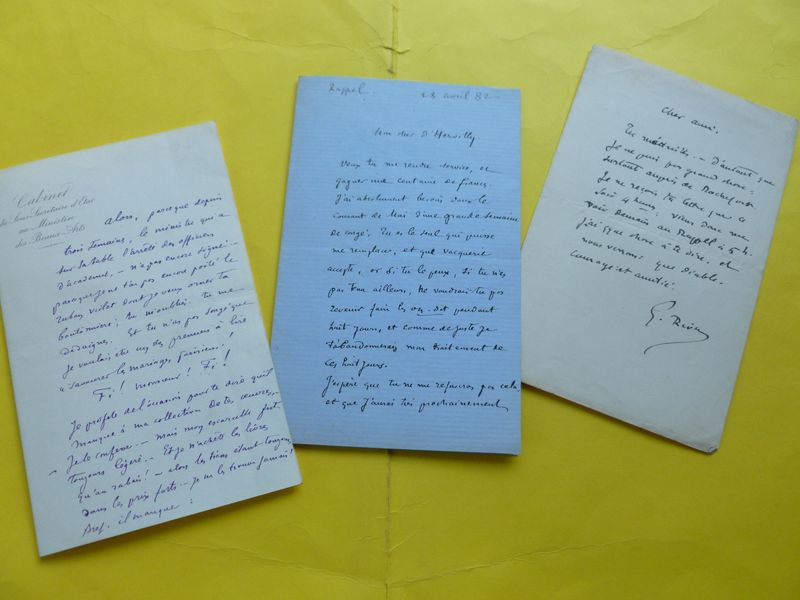 Cabinet
du Sous-Secrétaire d'Etat
au Ministère
des Beaux Arts
Alors, parceque depuis
trois semaines, le ministre qui a
sur sa table l'arrêté des officiers
d'académie, - n'a pas encore signé; -
parceque je ne t'ai pas encore porté le
ruban violet dont je veux orner ta
boutonnière; tu m'oublies. tu me
dédaignes. Et tu n'as pas songé que
je voulais être un des premiers à lire
à savourer les mariages Parisiens!
Fi! monsieur! Fi!
Je profite de l'occasion pour te dire qu'il
manque à ma collection de tes œuvres,
Je le confesse. - mais mon escarcelle fut
toujours légère. - Et je n'achète les livres
qu'au rabais! - alors les tiens étant toujours
dans les prix forts - je ne les trouve jamais!
Bref. il manque :
Rappel. 28 avril 82
Mon cher d'Hervilly.
Veux tu me rendre service, et
gagner une centaine de francs.
J'ai absolument besoin dans le
courant de Mai d'une grande semaine
de congé, Tu es le seul qui puisse
me remplacer, et que Vacquerie
accepte, or si tu le peux, si tu n'es
pas pris ailleurs, ne voudrais-tu pas
revenir faire les on-dit pendant
huit jours, et comme de juste je
t'abandonnerais mon traitement de
ces huit jours.
J'espère que tu ne me refuseras pas cela
et que j'aurai très prochainement
Cher ami.
Tu - D'autant que
je ne puis pas grand chose -
surtout auprès de Rochefort
Je ne reçois ta lettre que ce
soir 4 heures: viens donc me
voir demain au Rappel à 5 h.
j'ai quelque chose à te dire. et
nous verrons que diable.
Courage et amitié.